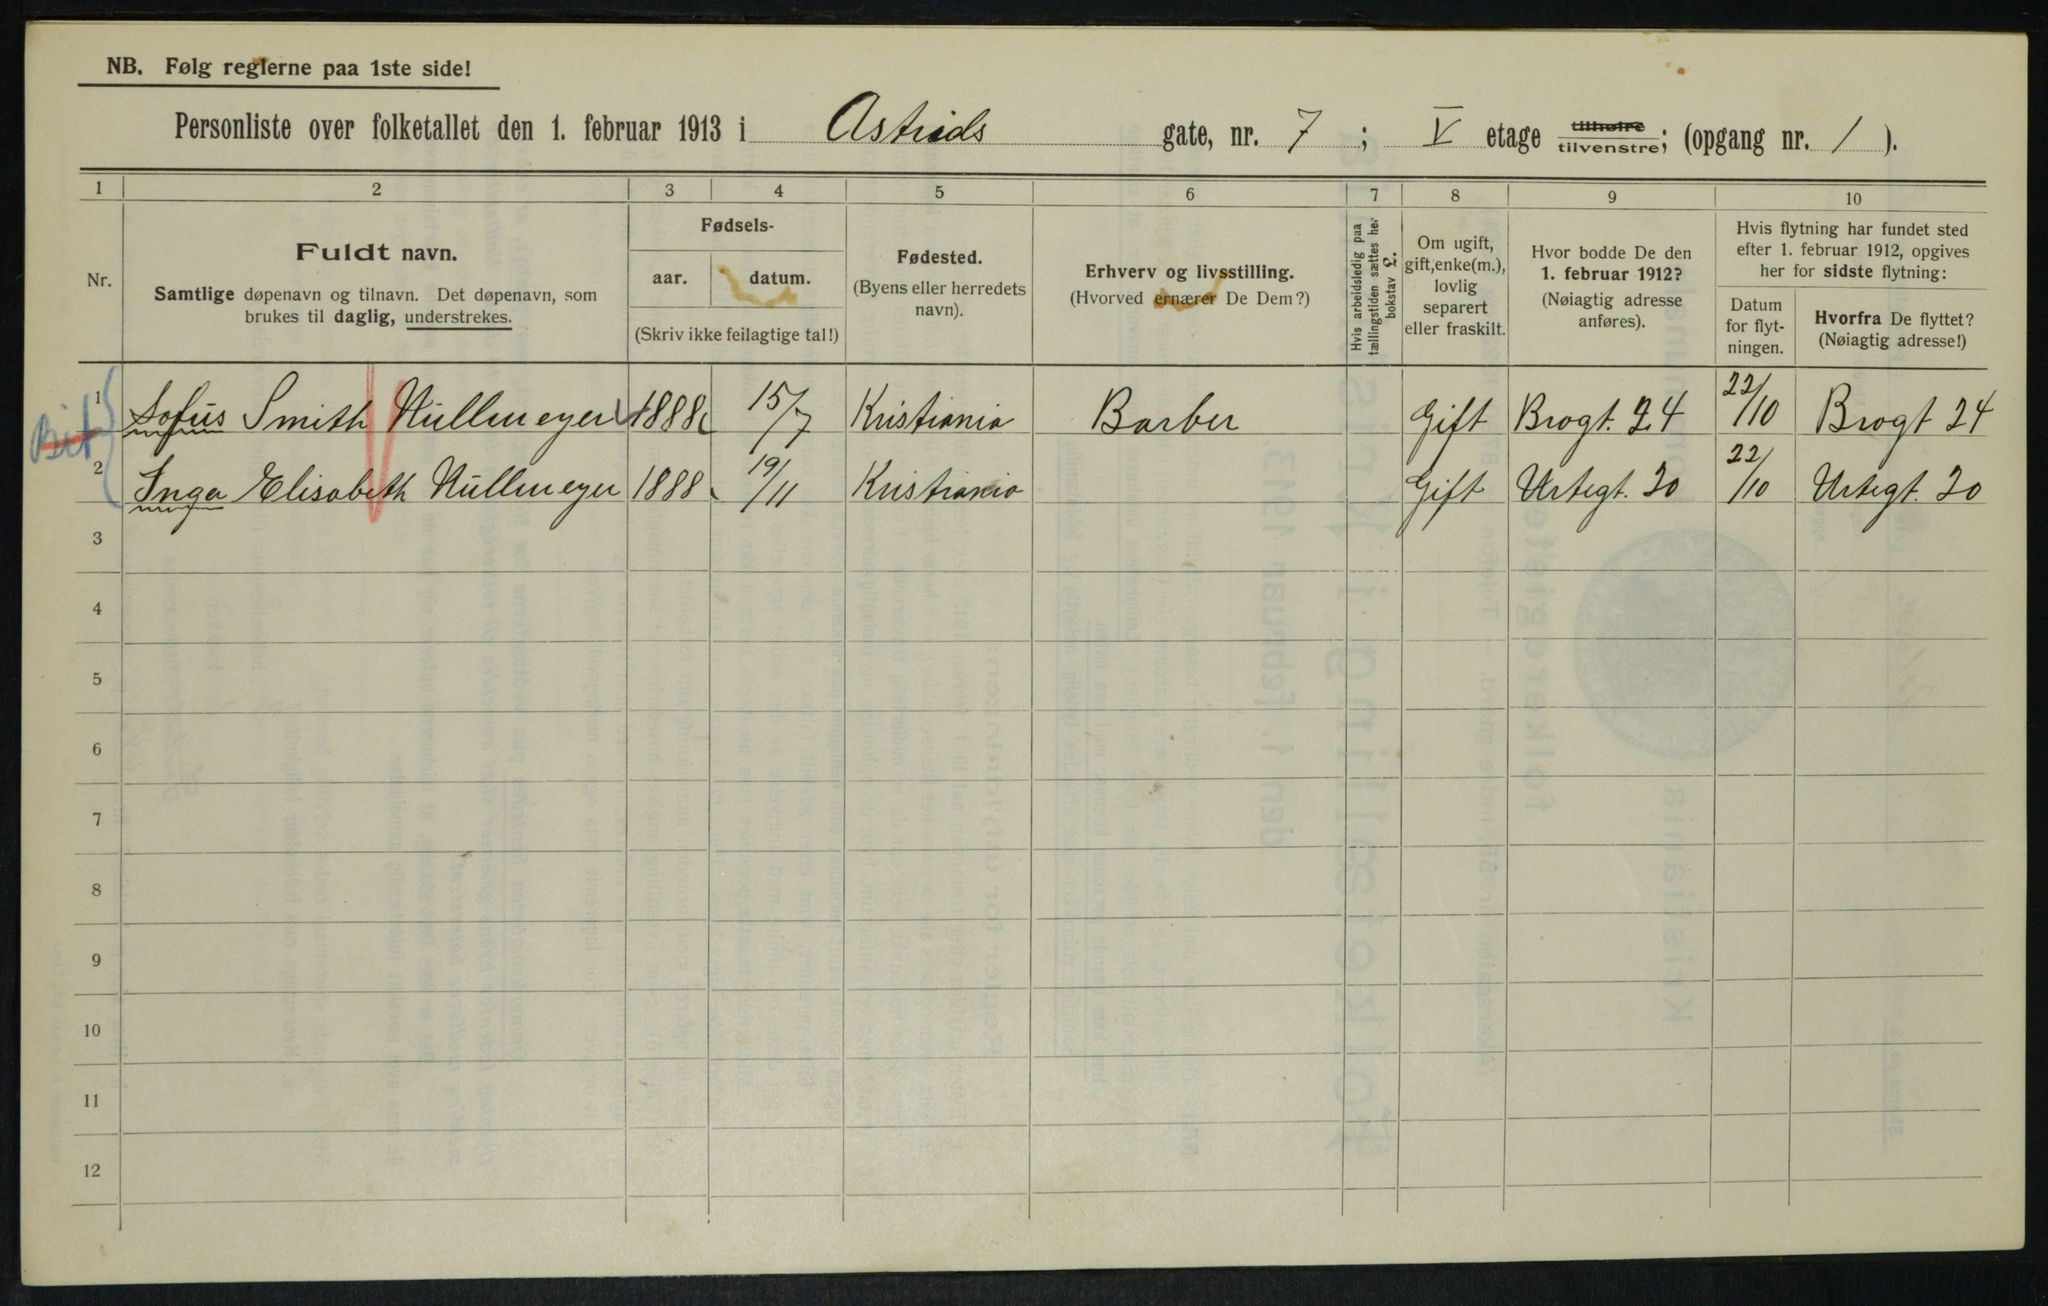 NB. Følg reglerne paa 1ste side!
Personliste over folketallet den 1. februar 1913 i Astrids gate, nr. 7; V etage tilhøire tilvenstre; (opgang nr. 1).
1 2 3 4 5 6 7 8 9 10
Nr.
Fuldt navn.
Samtlige døpenavn og tilnavn. Det døpenavn, som
brukes til daglig, understrekes.
Fødsels-
aar. datum.
(Skriv ikke feilagtige tal!)
Fødested.
(Byens eller herredets
navn).
Erhverv og livsstilling.
(Hvorved ernærer De Dem?)
Hvis arbeidsledig paa
tællingstiden sættes her
bokstav
Om ugift,
gift, enke(m.),
lovlig
separert
eller fraskilt.
Hvor bodde De den
1. februar 1912?
(Nøiagtig adresse
anføres).
Hvis flytning har fundet sted
efter 1. februar 1912, opgives
her for sidste flytning:
Datum
for flyt-
ningen.
Hvorfra De flyttet?
(Nøiagtig adresse!)
1 Sofus Smith Nullmeyer 1888 15/7 Kristiania Barber Gift Brogt. 24 22/10 Brogt 24
2 Inga Elisabeth Nullmeyer 1888 19/11 Kristiania Gift Urtegt. 20 22/10 Urtegt. 20
3
4
5
6
7
8
9
10
11
12